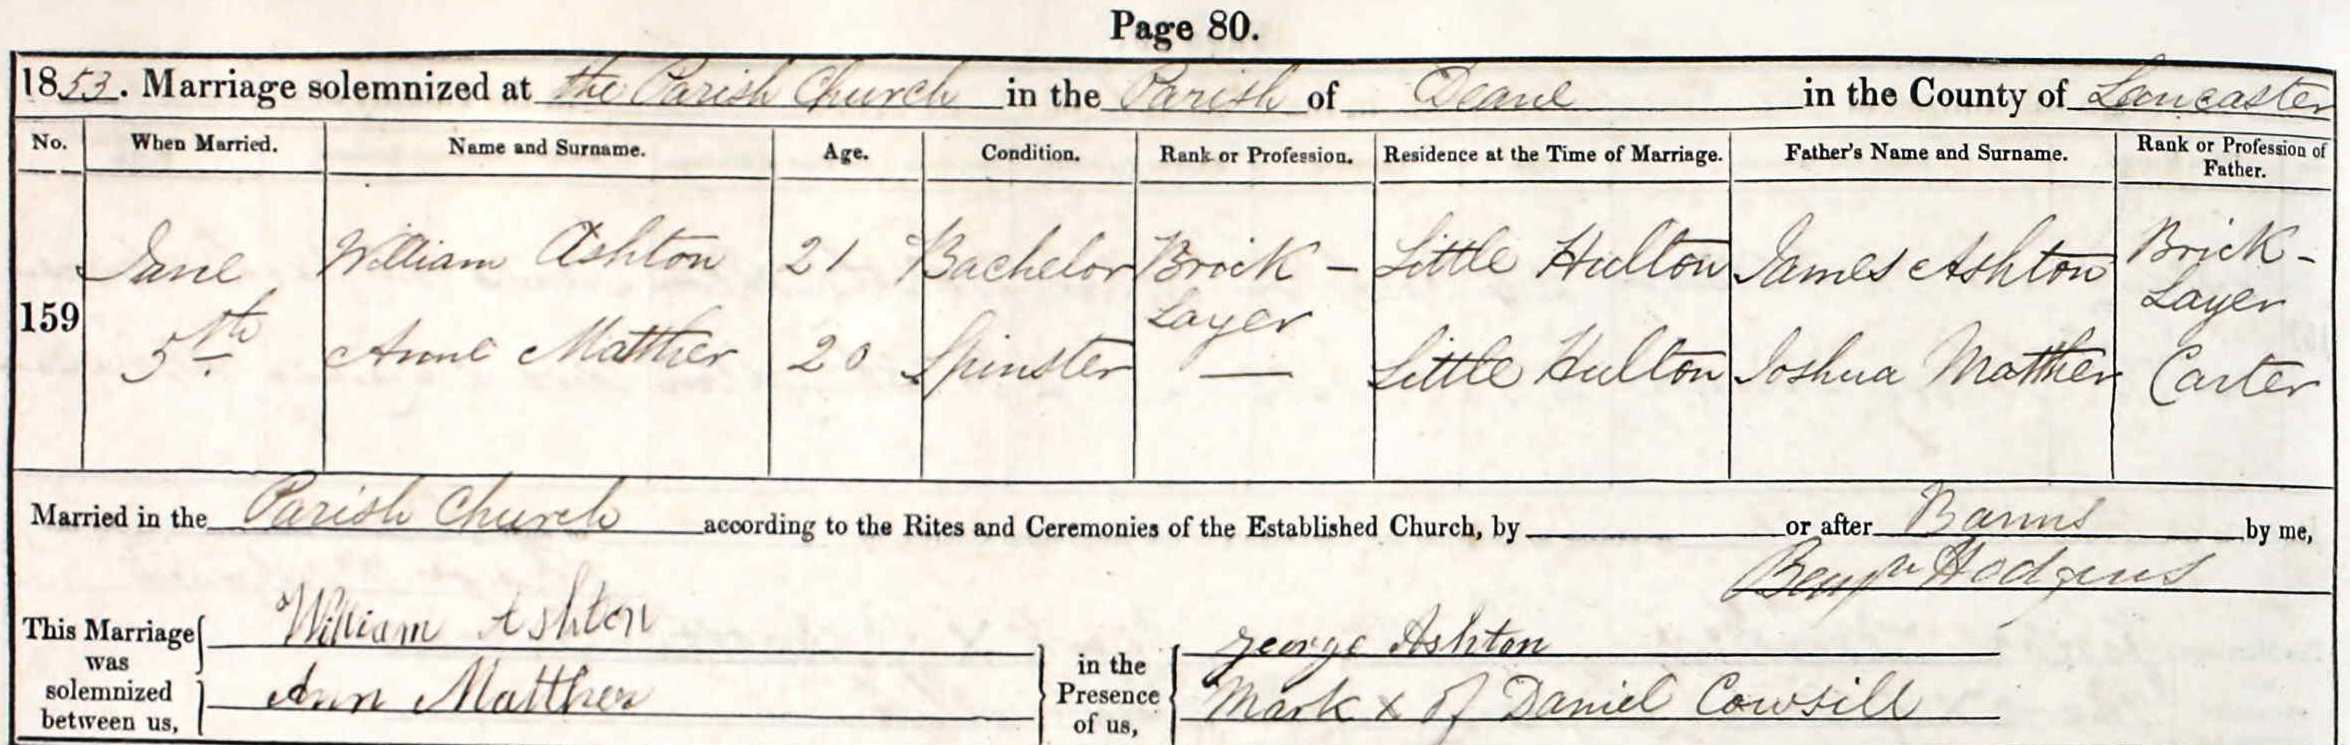 Page 80.
1853. Marriage solemnized at the Parish Church in the Parish of Deane in the County of Lancaster
No. When Married. Name and Surname. Age. Condition. Rank or Profession. Residence at the Time of Marriage. Father's Name and Surname. Rank or Profession of Father.
159 June 5th William Ashton 21 Bachelor Brick-Layer Little Hulton James Ashton Brick-Layer
Anne Matther 20 Spinster — Little Hulton Joshua Matther Carter
Married in the Parish Church according to the Rites and Ceremonies of the Established Church, by or after Banns by me,
Hodgens
This Marriage was solemnized between us, William Ashton
Ann Matther
in the Presence of us, George Ashton
Mark x of Daniel Cowsill